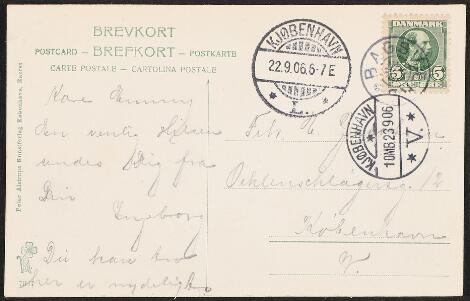 BREVKORT
POSTCARD - BREFKORT - POSTKARTE
CARTE POSTALE - CARTOLINA POSTALE
Peter Alstrups Kunstforlag København, Eneret
KJØBENHAVN
22.9.06.6-7E
L.
DANMARK
5 5
KJØBENHAVN
1OMB.23906
V.
Kære
En venlig Hilsen
sendes Dig fra
Din
Ingeborg
Du kan tro
her er nydeligt
Frk.
Oehlenschlægersg. 12
København
V.